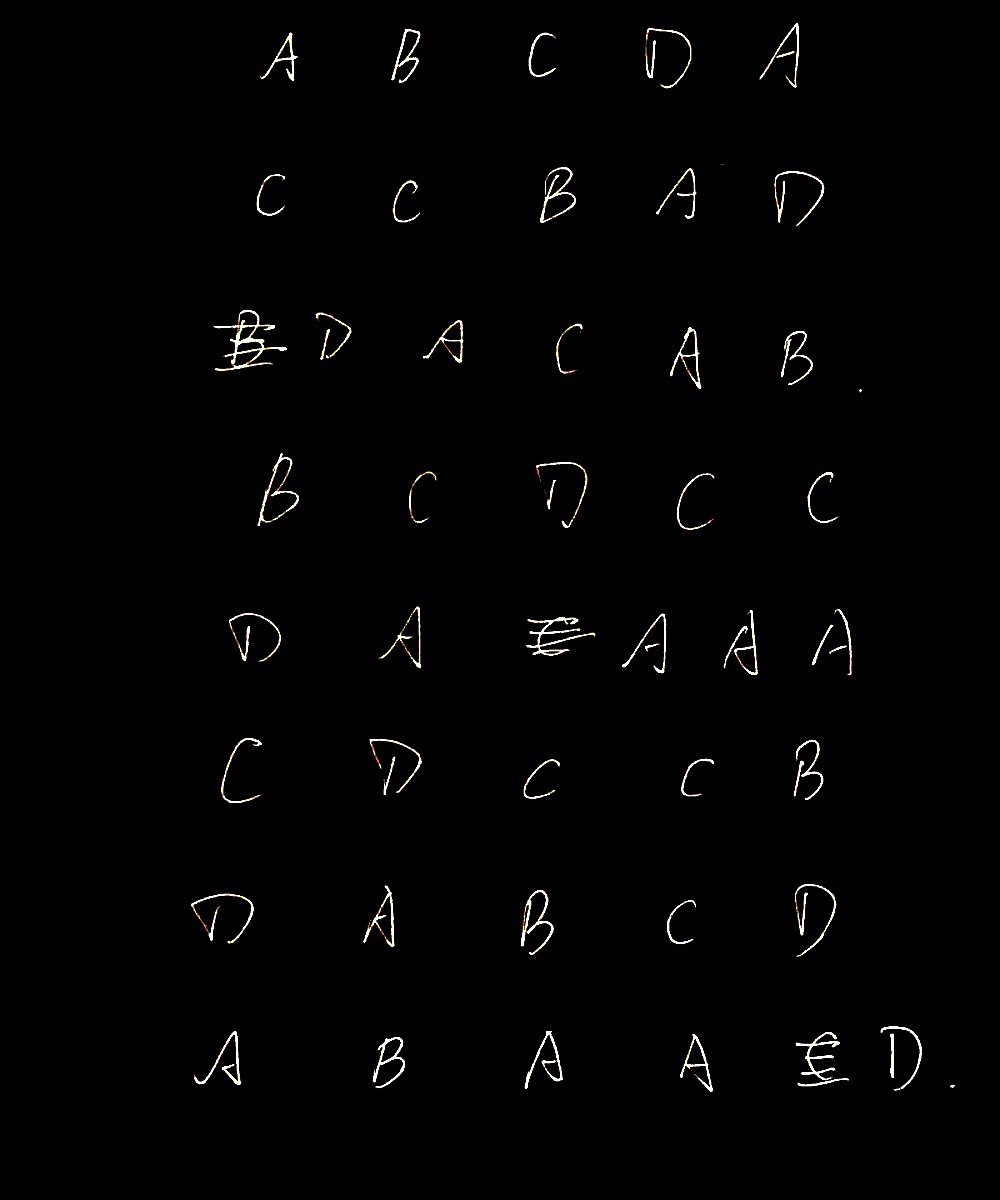 A B C D A
C C B A D
D A C A B .
B C D C C
D A A A A
C D C C B
D A B C D
A B A A D .